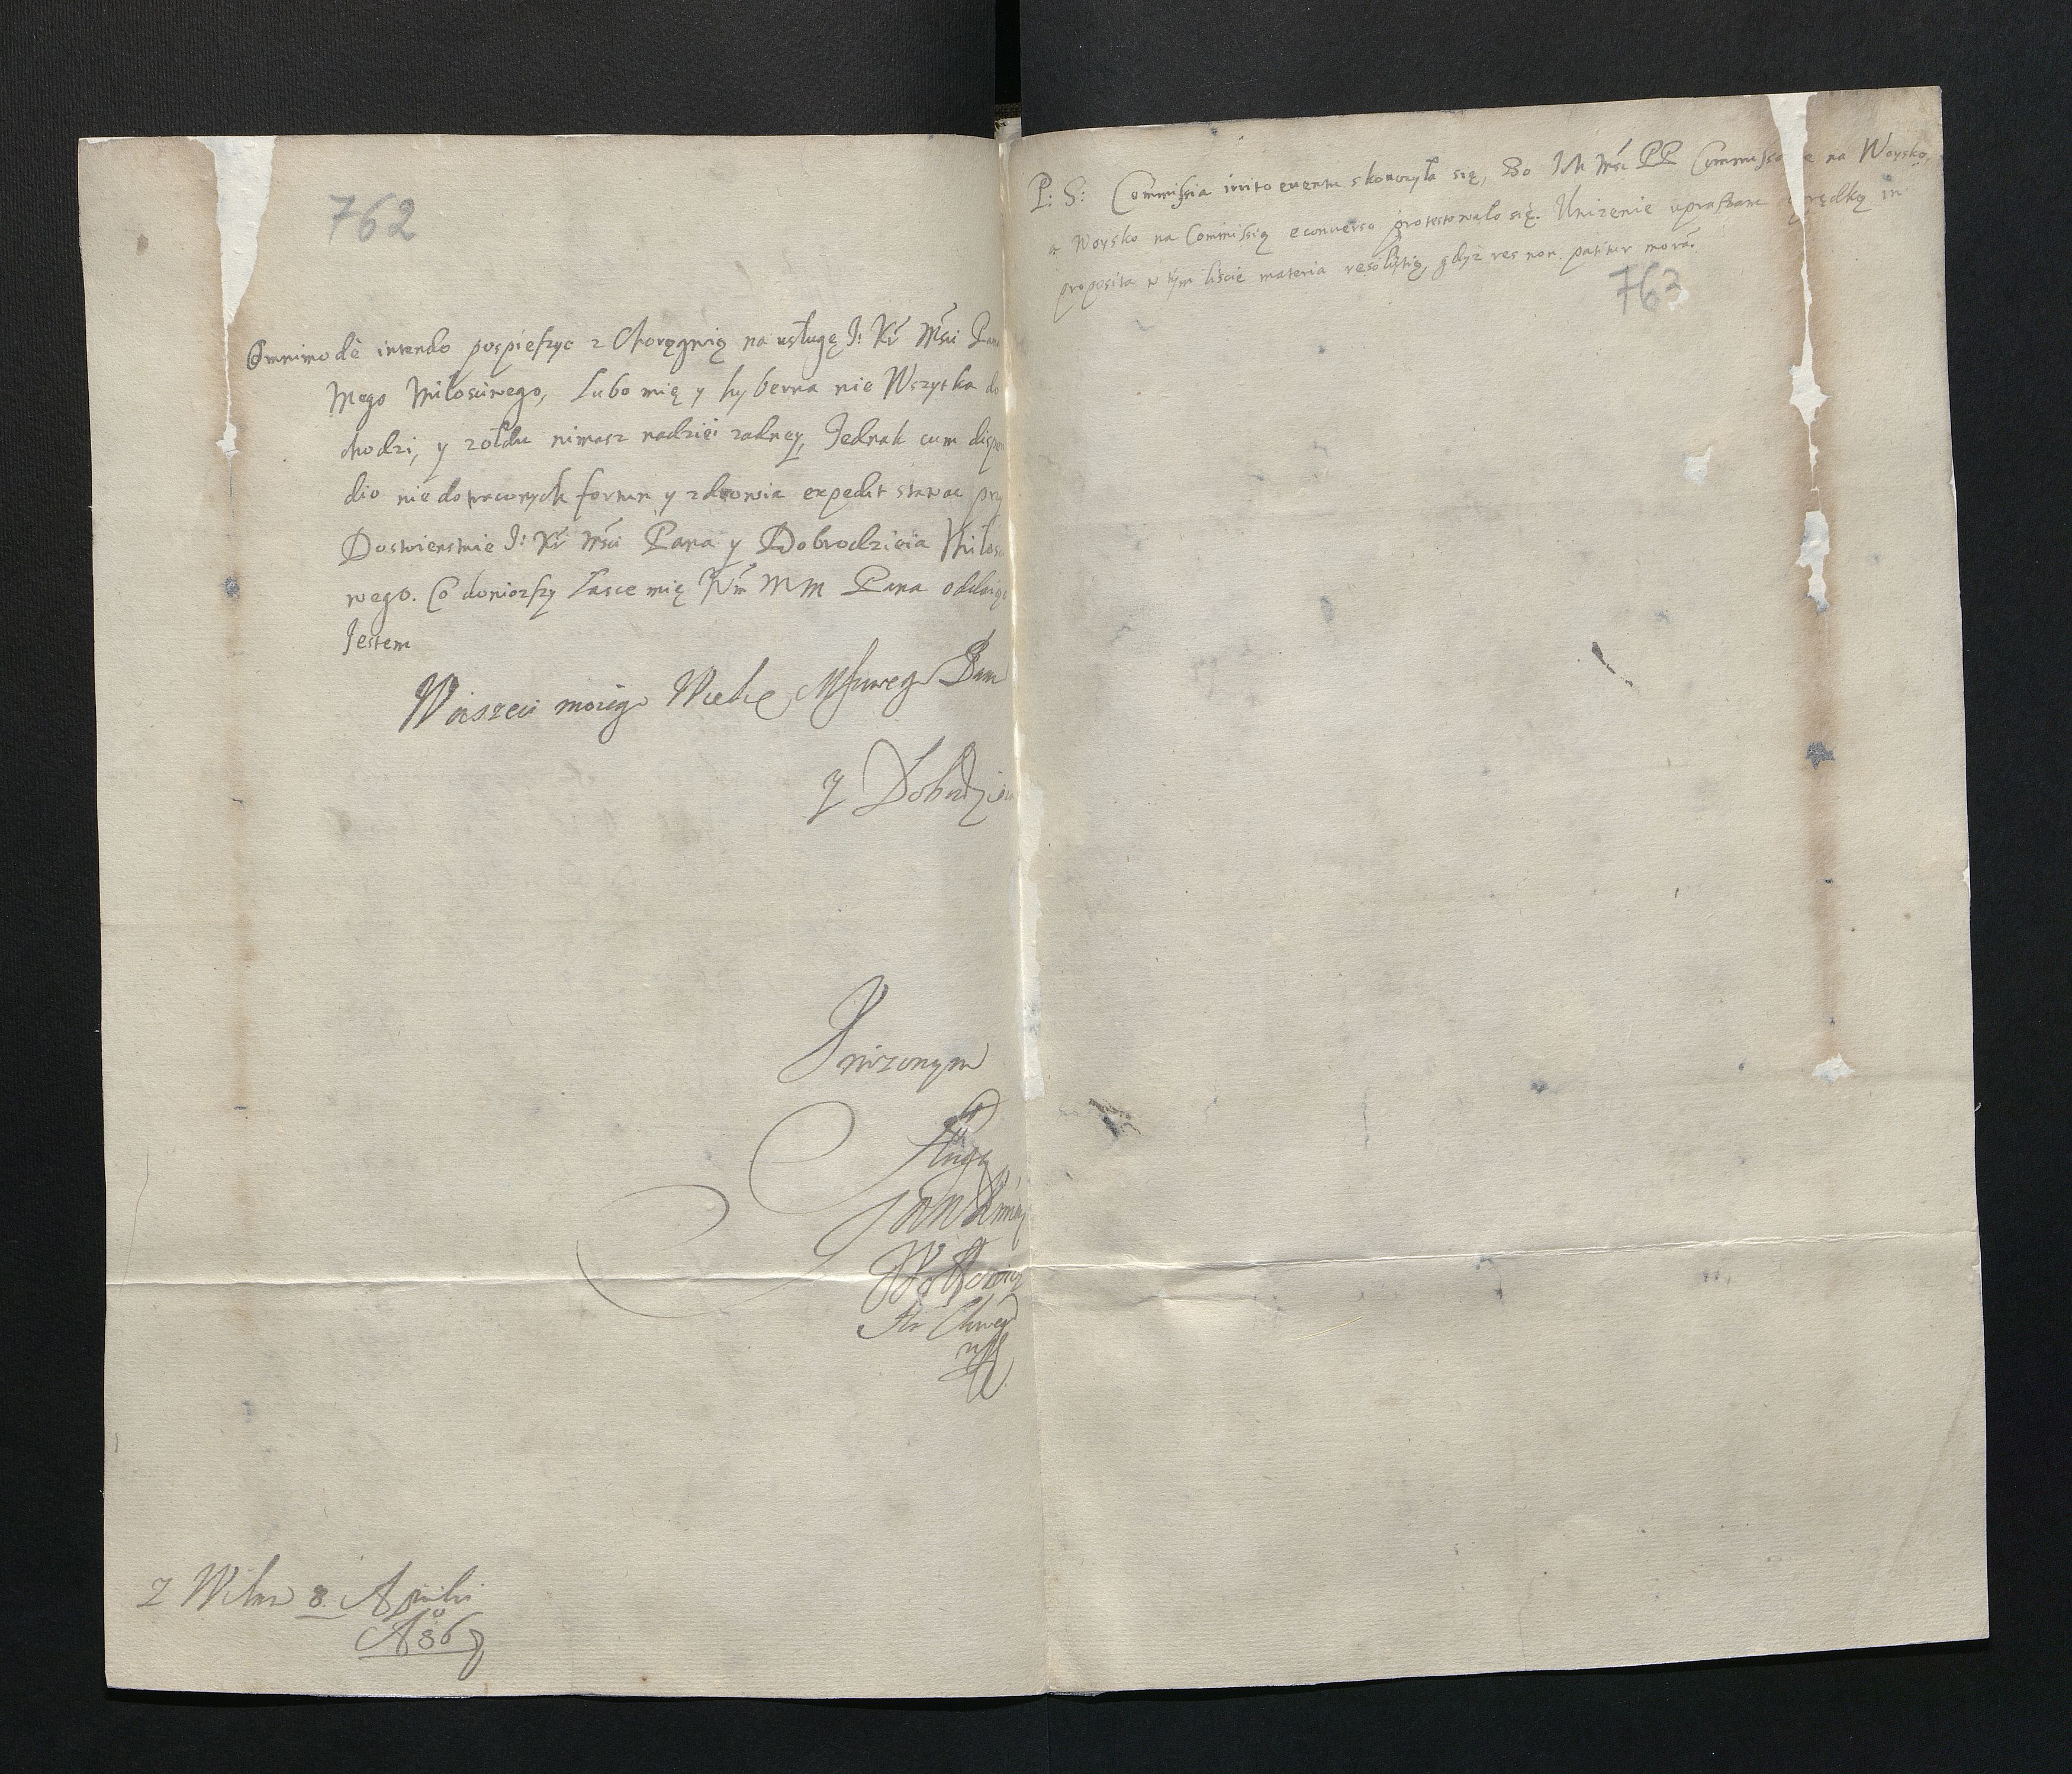 762
Omnimodè intendo pospieszyc z Chorągwią na usługę J: Kr Msci Pana
Mego Miłosciwego, Lubo mię y hyberna nie Wszytka do
chodzi, y zołdu nimasz nadziei zadney, Jednak cum dispen
dio niedotraconych fortun y zdrowia expedit stawac przy
Dostoienstwie J: Kr Msci Pana y Dobrodzieia Miłosci
wego. Co doniozszy Łasce mię Wm M M Pana oddaię
Jestem
Waszeci moiego Pana
y Dobrodzieia
Vnizonym
Sługą
Jan
Str
Z Wilna 8. Aprilis
Aº 86
P: S: Commissia irrito euentu skonczyła się, Bo Ich Msc PP Commissarze na Woysko,
a Woysko na Commissią econuerso protestowało się. Unizenie upraszam o prędką in
proposita w tym liście materia resolutią, gdyż res non patitur moram.
763